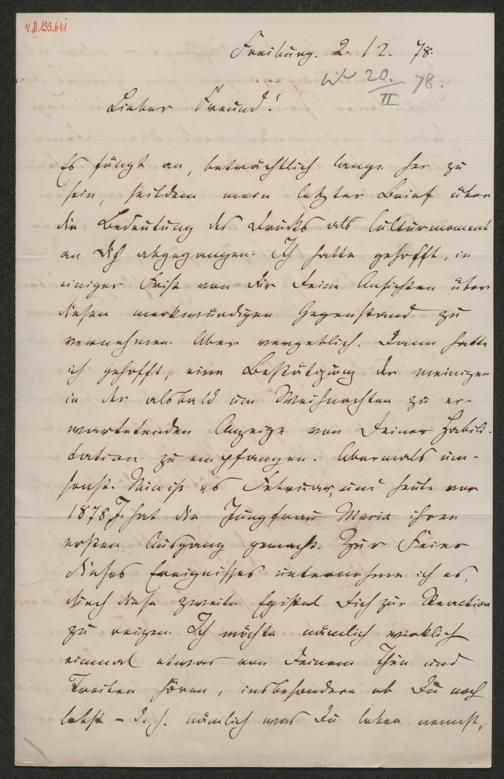 4.D.133.641
Freiburg. 2./2. 78.
20./II 78.
Lieber Freund!
Es fängt an, beträchtlich lange her zu
sein, seitdem mein letzter Brief über
die Bedeutung des Drucks als Culturmoment
an Dich abgegangen. Ich hatte gehofft, in
einiger Frist von Dir Deine Ansichten über
diesen merkwürdigen Gegenstand zu
vernehmen. Aber vergeblich. Dann hatte
ich gehofft, eine Bestätigung der meinigen
in der alsbald um Weihnachten zu er-
wartetenden Anzeige von Deiner Habili-
tation zu empfangen. Abermals um-
sonst. Nun ist es Februar, und heute vor
1878 J. hat die Jungfrau Maria ihren
ersten Ausgang gemacht. Zur Feier
dieses Ereignisses unternehme ich es,
durch diese zweite Epistel Dich zur Reaction
zu reizen. Ich möchte nämlich wirklich
einmal etwas von Deinem Thun und
Treiben hören, insbesondere ob Du noch
lebst – d. h. nämlich was Du leben nennst,